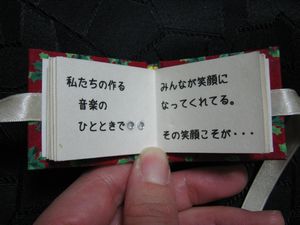 私たちの作る
音楽の
ひとときで
みんなが笑顔に
なってくれてる。
その笑顔こそが・・・